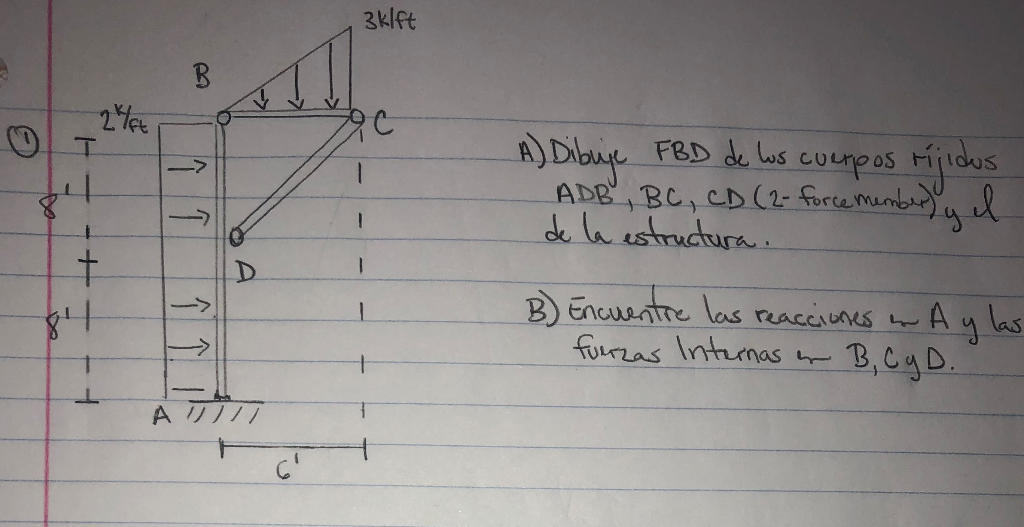 3k/ft
B
2k/ft
C
①
8'
D
8'
A
6'
A) Dibuje FBD de los cuerpos ríjidos
ADB, BC, CD (2-force member) y el
de la estructura.
B) Encuentre las reacciones en A y las
fuerzas Internas en B, C y D.